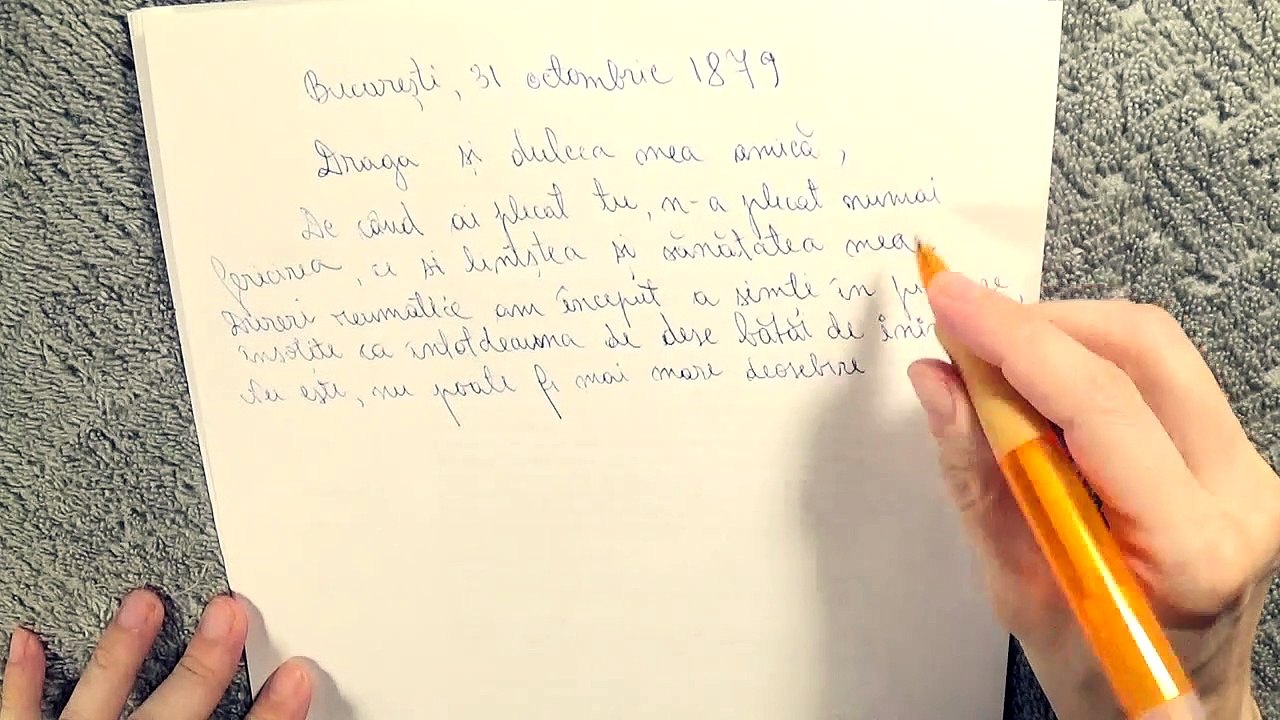 București, 31 octombrie 1879
Draga și dulcea mea amică,
De când ai plecat tu, n-a plecat numai
fericirea, ci și liniștea și sănătatea mea
Dureri reumatice am început a simți în
însoțite ca întotdeauna de dese bătăi de
Nu ești, nu poate fi mai mare deosebire